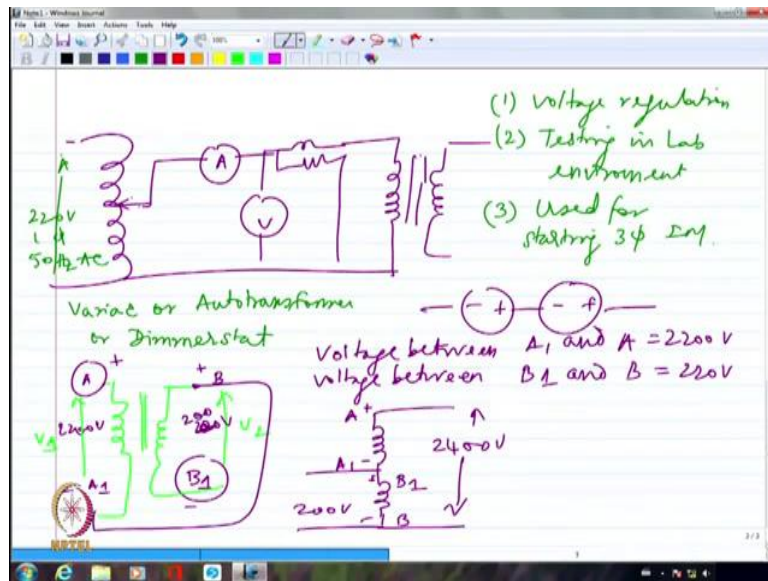 Note1 - Windows Journal
File Edit View Insert Actions Tools Help
100%
B I
(1) Voltage regulation
(2) Testing in Lab
enviroment
(3) Used for
starting 3φ IM.
A
V
A
220V
1 φ
50Hz AC
Variac or Autotransformer
or Dimmerstat
- + - +
Voltage between A1 and A = 2200 V
voltage between B1 and B = 220V
A + + B
V1 2200V 200V V2
A1 B1 -
A +
A1 -
B1
200V - B
2400V
NPTEL
2/2